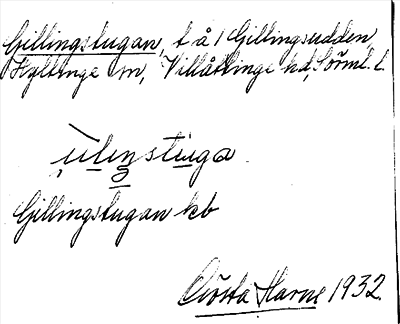 Gillingstugan, t å 1 Gillingsudden,
Hyltinge sn, Villåttinge hd, Sörml. l.
stuga
Gillingstugan kb
Gösta Harne 1932.